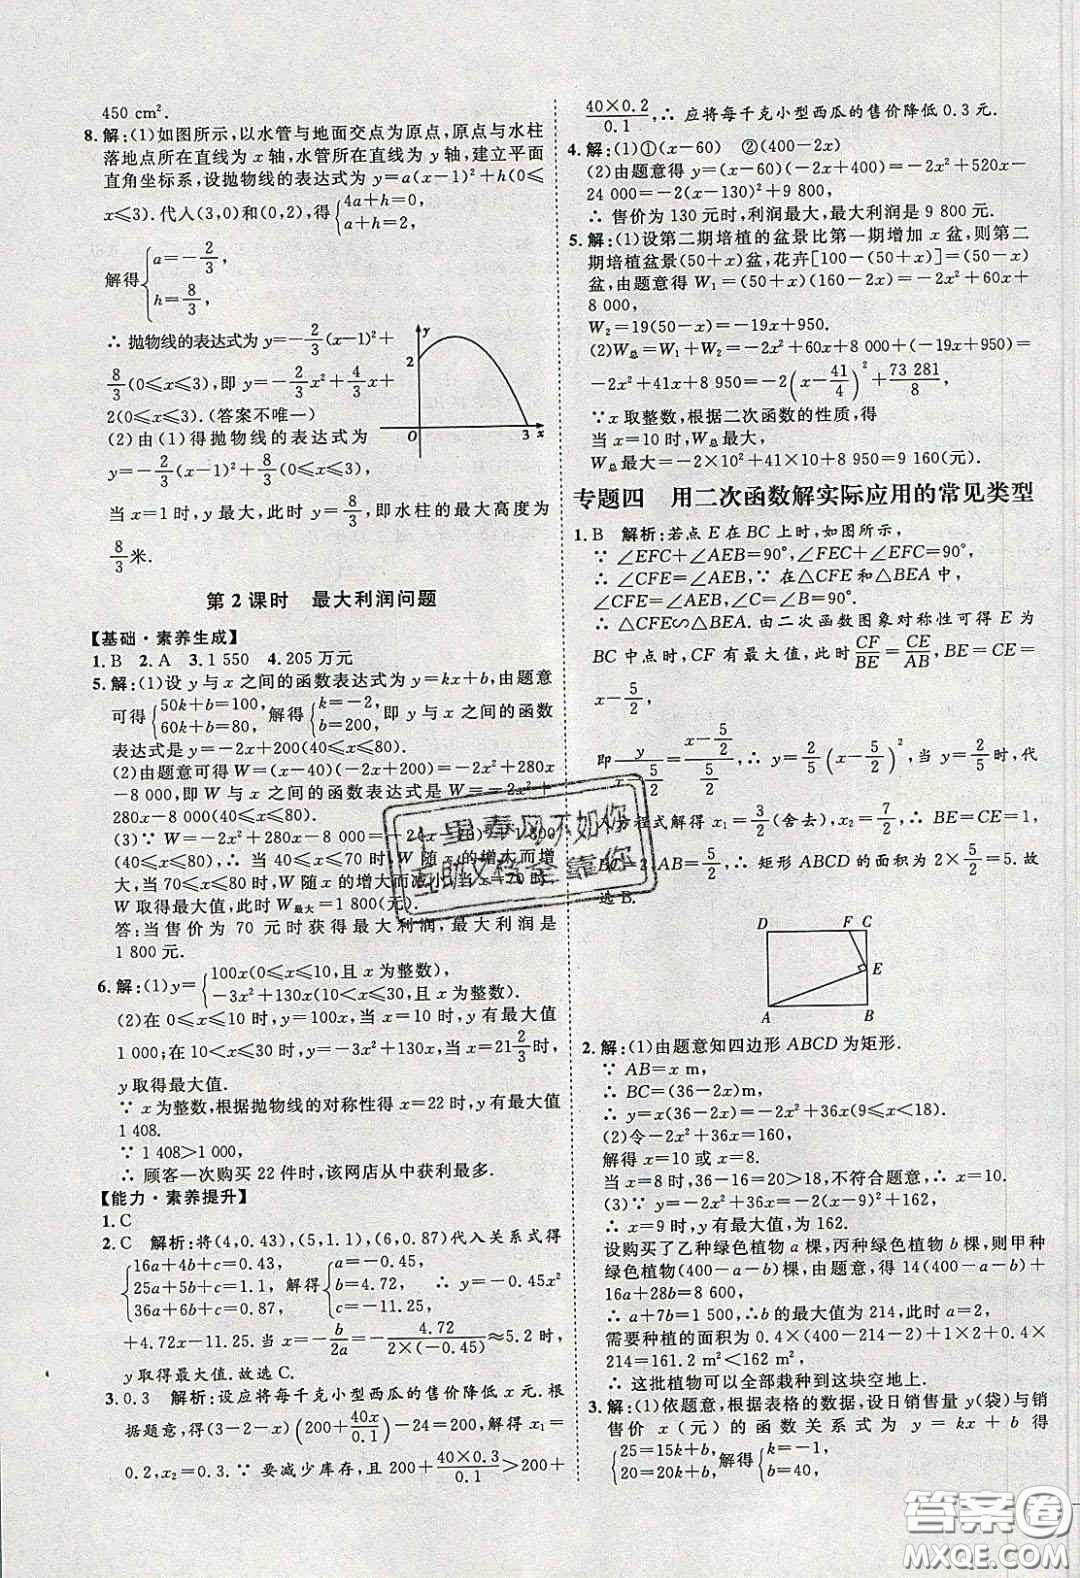 450 cm².
8.解:(1)如图所示,以水管与地面交点为原点,原点与水柱
落地点所在直线为 x 轴,水管所在直线为 y 轴,建立平面
直角坐标系,设抛物线的表达式为 y=a(x-1)²+h(0≤
x≤3).代入(3,0)和(0,2),得{4a+h=0, a+h=2.
解得{a=-2/3, h=8/3,
∴ 抛物线的表达式为 y=-2/3(x-1)²+
8/3(0≤x≤3),即 y=-2/3x²+4/3x+
2(0≤x≤3).(答案不唯一)
(2)由(1)得抛物线的表达式为
y=-2/3(x-1)²+8/3(0≤x≤3),
y
2
O
3
x
当 x=1 时,y 最大,此时 y=8/3,即水柱的最大高度为
8/3米.
第 2 课时 最大利润问题
【基础·素养生成】
1.B 2.A 3.1 550 4.205 万元
5.解:(1)设 y 与 x 之间的函数表达式为 y=kx+b,由题意
可得{50k+b=100, 60k+b=80,解得{k=-2, b=200,即 y 与 x 之间的函数
表达式是 y=-2x+200(40≤x≤80).
(2)由题意可得 W=(x-40)(-2x+200)=-2x²+280x
-8 000,即 W 与 x 之间的函数表达式为 W=-2x²+
280x-8 000(40≤x≤80).
(3)∵ W=-2x²+280x-8 000=-2(x-70)²+1 800
(40≤x≤80),∴ 当 40≤x≤70 时,W 随 x 的增大而增
大,当 70≤x≤80 时,W 随 x 的增大而减小,当 x=70 时,
W 取得最大值,此时 W最大=1 800(元).
答:当售价为 70 元时获得最大利润,最大利润是
1 800 元.
6.解:(1)y={100x(0≤x≤10,且 x 为整数), -3x²+130x(10<x≤30,且 x 为整数).
(2)在 0≤x≤10 时,y=100x,当 x=10 时,y 有最大值
1 000;在 10<x≤30 时,y=-3x²+130x,当 x=21 2/3 时,
y 取得最大值.
∵ x 为整数,根据抛物线的对称性得 x=22 时,y 有最大值
1 408.
∵ 1 408>1 000,
∴ 顾客一次购买 22 件时,该网店从中获利最多.
【能力·素养提升】
1.C
2.C 解析:将(4,0.43),(5,1.1),(6,0.87)代入关系式得
{16a+4b+c=0.43, 25a+5b+c=1.1, 36a+6b+c=0.87,解得{a=-0.45, b=4.72, c=-11.25, ∴ y=-0.45x²
+4.72x-11.25.当 x=-b/2a=-4.72/2×(-0.45)≈5.2 时,
y 取得最大值.故选 C.
3.0.3 解析:设应将每千克小型西瓜的售价降低 x 元.根
据题意,得(3-2-x)(200+40x/0.1)-24=200,解得 x₁=
0.2,x₂=0.3.∵ 要减少库存,且 200+40×0.3/0.1>200+
40×0.2/0.1,∴ 应将每千克小型西瓜的售价降低 0.3 元.
4.解:(1)①(x-60) ②(400-2x)
(2)由题意得 y=(x-60)(-2x+400)=-2x²+520x-
24 000=-2(x-130)²+9 800,
∴ 售价为 130 元时,利润最大,最大利润是 9 800 元.
5.解:(1)设第二期培植的盆景比第一期增加 x 盆,则第二
期培植盆景(50+x)盆,花卉[100-(50+x)]=(50-x)
盆,由题意得 W₁=(50+x)(160-2x)=-2x²+60x+
8 000,
W₂=19(50-x)=-19x+950.
(2)W总=W₁+W₂=-2x²+60x+8 000+(-19x+950)=
-2x²+41x+8 950=-2(x-41/4)²+73 281/8,
∵x 取整数,根据二次函数的性质,得
当 x=10 时,W总最大,
W总最大=-2×10²+41×10+8 950=9 160(元).
专题四 用二次函数解实际应用的常见类型
1.B 解析:若点 E 在 BC 上时,如图所示.
∵ ∠EFC+∠AEB=90°,∠FEC+∠EFC=90°,
∴ ∠CFE=∠AEB,∵ 在△CFE 和△BEA 中,
∠CFE=∠AEB, ∠C=∠B=90°,
∴ △CFE∽△BEA.由二次函数图象对称性可得 E 为
BC 中点时,CF 有最大值,此时CF/BE=CE/AB,BE=CE=
x-5/2,
即y/(x-5/2)=(x-5/2)/(5/2),∴ y=2/5(x-5/2)²,当 y=2/5时,代
入方程式解得 x₁=3/2(舍去),x₂=7/2,∴ BE=CE=1,
∴ BC=2,AB=5/2,∴ 矩形 ABCD 的面积为 2×5/2=5.故
选 B.
D
F
C
E
A
B
2.解:(1)由题意知四边形 ABCD 为矩形.
∵ AB=x m,
∴ BC=(36-2x)m,
∴ y=x(36-2x)=-2x²+36x(9≤x<18).
(2)令-2x²+36x=160,
解得 x=10 或 x=8.
当 x=8 时,36-16=20>18,不符合题意,∴ x=10.
(3)∵ y=-2x²+36x=-2(x-9)²+162,
∴ x=9 时,y 有最大值,为 162.
设购买了乙种绿色植物 a 棵,丙种绿色植物 b 棵,则甲种
绿色植物(400-a-b)棵,由题意,得 14(400-a-b)+
16a+28b=8 600,
∴ a+7b=1 500,∴b 的最大值为 214,此时 a=2.
需要种植的面积为 0.4×(400-214-2)+1×2+0.4×
214=161.2 m²<162 m²,
∴ 这批植物可以全部栽种到这块空地上.
3.解:(1)依题意,根据表格的数据,设日销售量 y(袋)与销
售价 x(元)的函数关系式为 y=kx+b 得
{25=15k+b, 20=20k+b,解得{k=-1, b=40,
答案圈
MXQE.COM